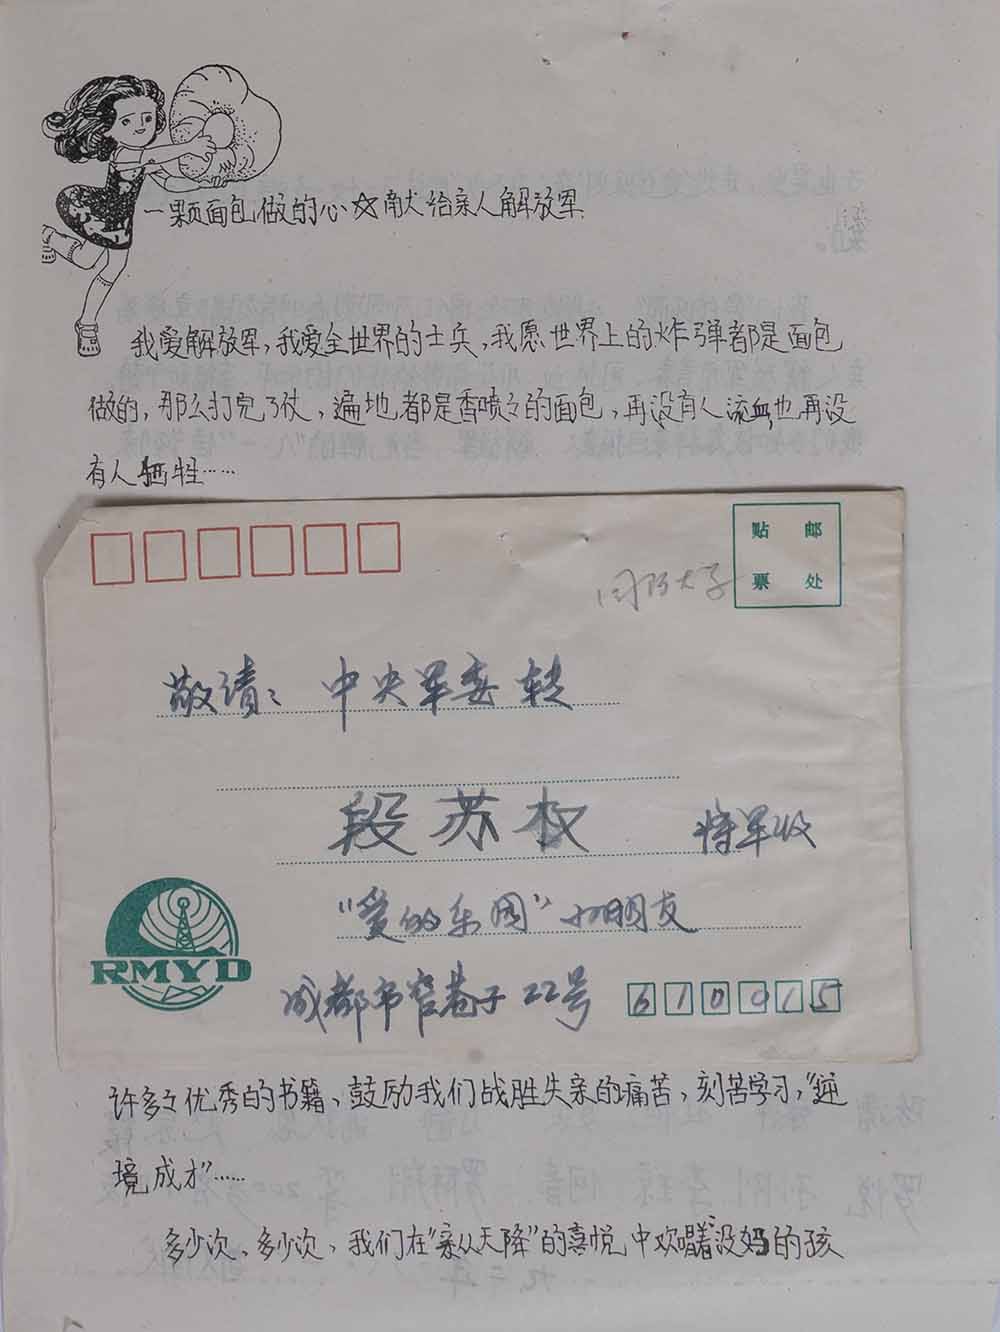 一颗面包做的心☆献给亲人解放军
我爱解放军，我爱全世界的士兵，我愿世界上的炸弹都是面包
做的，那么打完了仗，遍地都是香喷々的面包，再没有人流血，也再没
有人牺牲……
贴 邮
票 处
国防大学
敬请：中央军委转
段苏权 将军收
“爱的乐园”小朋友
RMYD
成都市窄巷子22号 610015
许多々优秀的书籍、鼓励我们战胜失亲的痛苦，刻苦学习，“逆
境成才”……
多少次、多少次，我们在“亲从天降”的喜悦中欢唱着没妈的孩